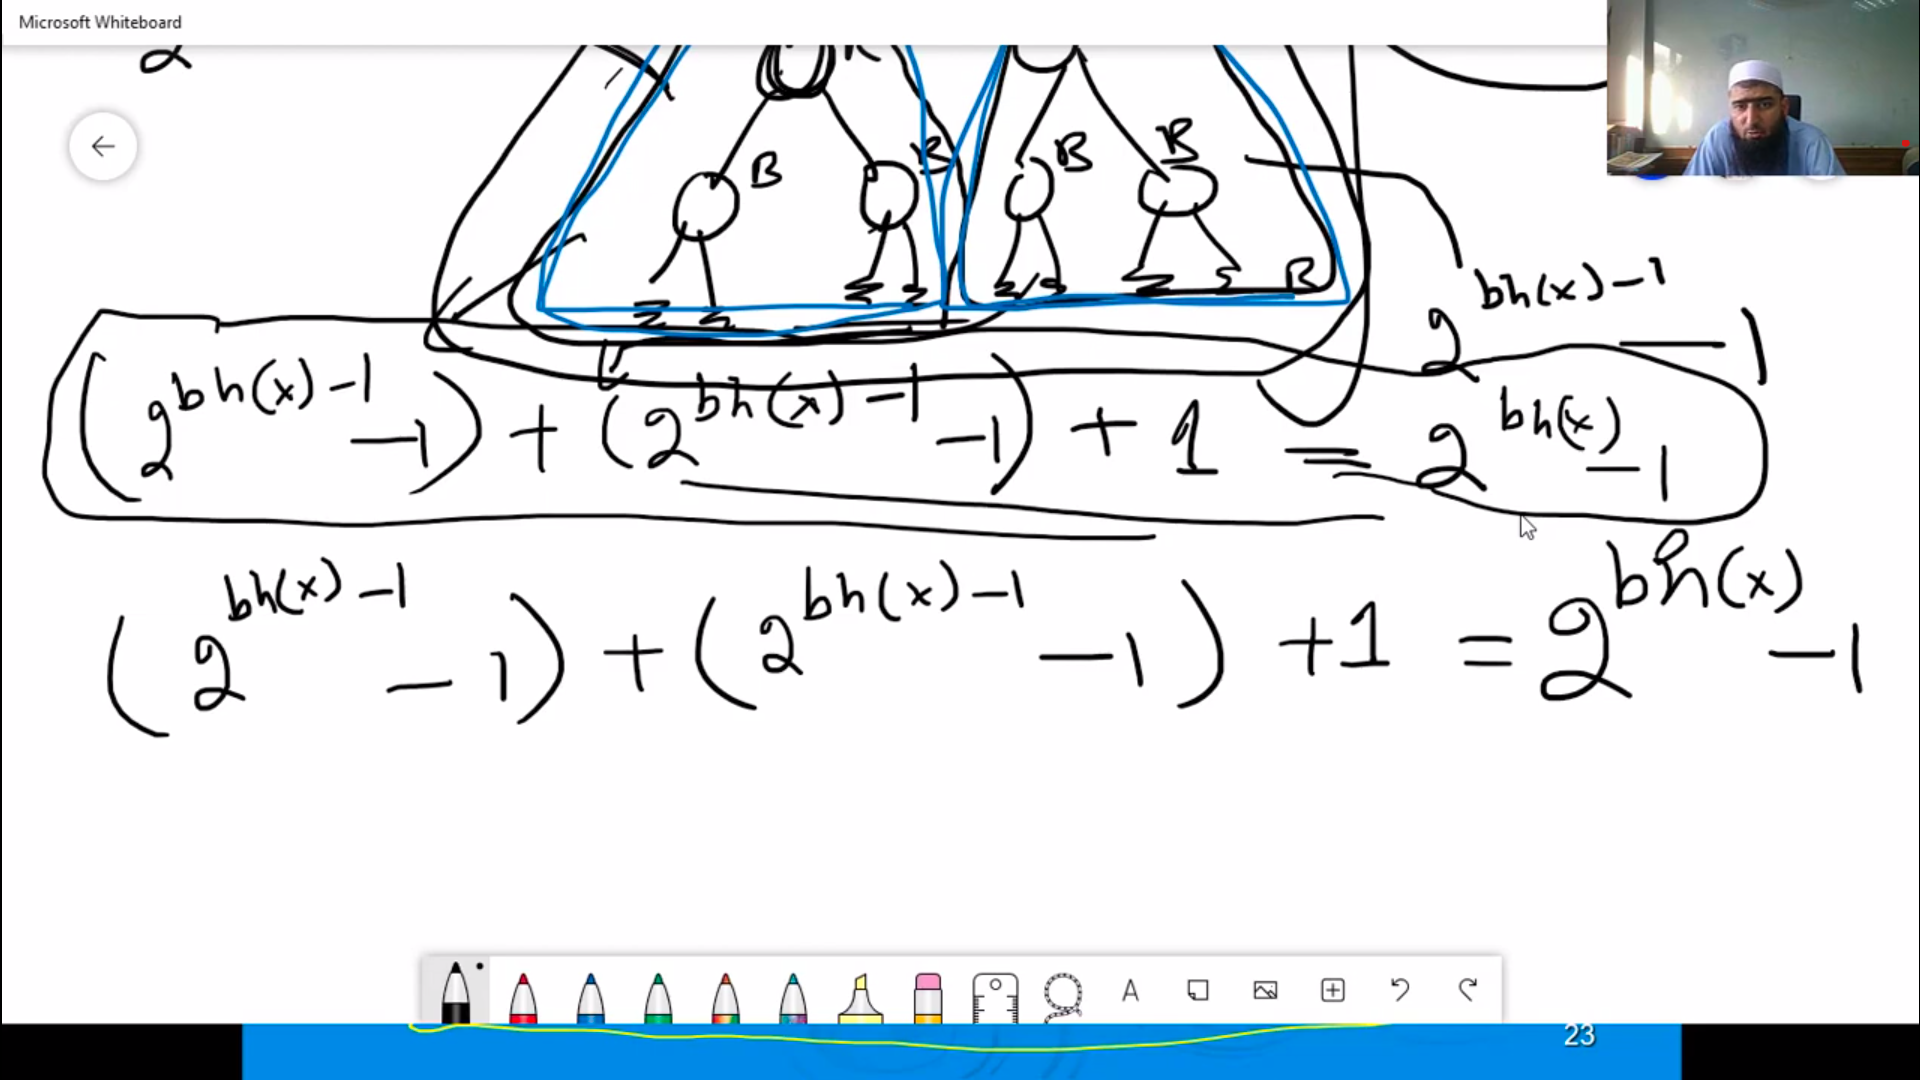 Microsoft Whiteboard
2
B
B
B
B
B
2^bh(x)-1 - 1
(2^bh(x)-1 -1) + (2^bh(x)-1 -1) + 1 = 2^bh(x) -1
(2^bh(x)-1 -1) + (2^bh(x)-1 -1) +1 = 2^bh(x) -1
A
23